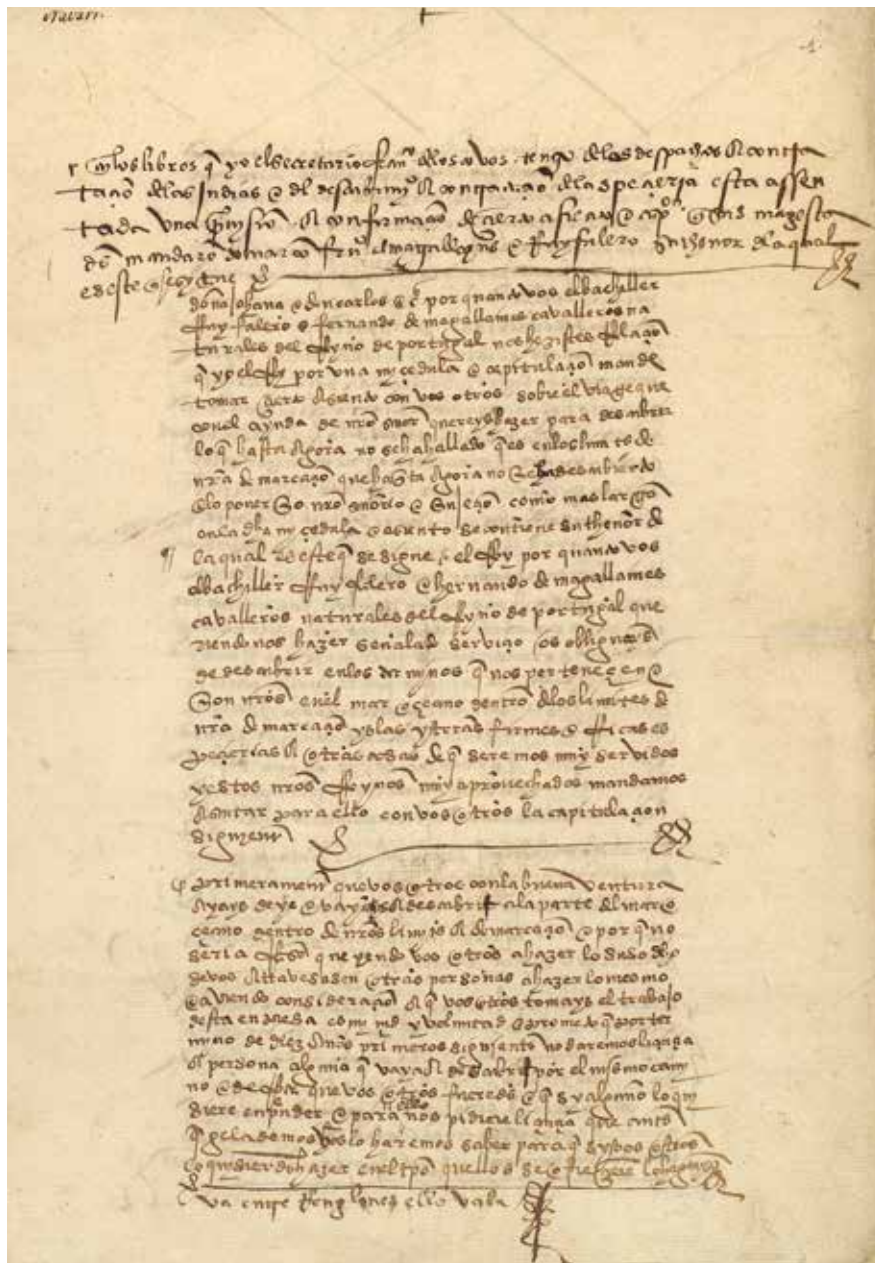 navarr.
1
en los libros q̃ yo el secretario franco delos covos tengo delos despachos
delas indias e del descubrimyo dela especeria esta assen
tada una e confirmaçon de asiento e capon q̃ sus magesta
des mandaron tomar con frrdo de magallayns e Ruy falero su thenor dela qual
es este que se sygue
doña Johana e don carlos etc por quanto vos el bachiller
Ruy falero e fernando de magallanes cavalleros na
turales del Reyno de portugal nos hezistes Relaçon
q̃ yo el Rey por una my çedula e capitulaçon mande
tomar çierto asiento con vos otros sobre el viage que
con el ayuda de nro señor quereys hazer para descubrir
lo q̃ hasta agora no se ha hallado q̃ es en los limites de
nra demarcaçon que hasta agora no se ha descubierto
e lo poner so nro señorio e sujeçon como mas largo
en la dha my çedula e asiento se contiene su thenor de
la qual es este q̃ se sigue el Rey por quanto vos
el bachiller Ruy falero e hernando de magallanes
cavalleros naturales del Reyno de portugal que
riendo nos hazer señalado serviçio os obligays
de descubrir en los termynos q̃ nos perteneçen e
son nros en el mar oçeano dentro delos limites de
nra demarcaçon yslas y trras firmes e Ricas es
peçerias e otras cosas de q̃ seremos muy servidos
y estos nros Reynos muy aprovechados mandamos
asentar para ello con vos otros la capitulaçon
siguiente
primeramente que vos otros con la buena ventura
ayays de yr e vayays a descobrir a la parte del mar o
çeano dentro de nros limites e demarcaçon e por q̃ no
seria Razon que yendo vos otros a hazer lo suso dho
se vos atravesasen otras personas a hazer lo mesmo
e aviendo consideraçon a q̃ vos otros tomays el trabajo
desta enpresa es my md y voluntad e prometo q̃ por ter
mino de diez años primeros siguientes no daremos liçençia
a persona alguna q̃ vaya a descobrir por el mismo cami
no e derrota que vos otros fueredes e q̃ sy alguno lo qui
siere enprender e para ello nos pidiere liçençia que antes
q̃ gela demos vos lo haremos saber para q̃ sy vos otros
lo quisierdes hazer en el tpo quellos se ofreçieren lo hagays
va entre Renglones ello vala